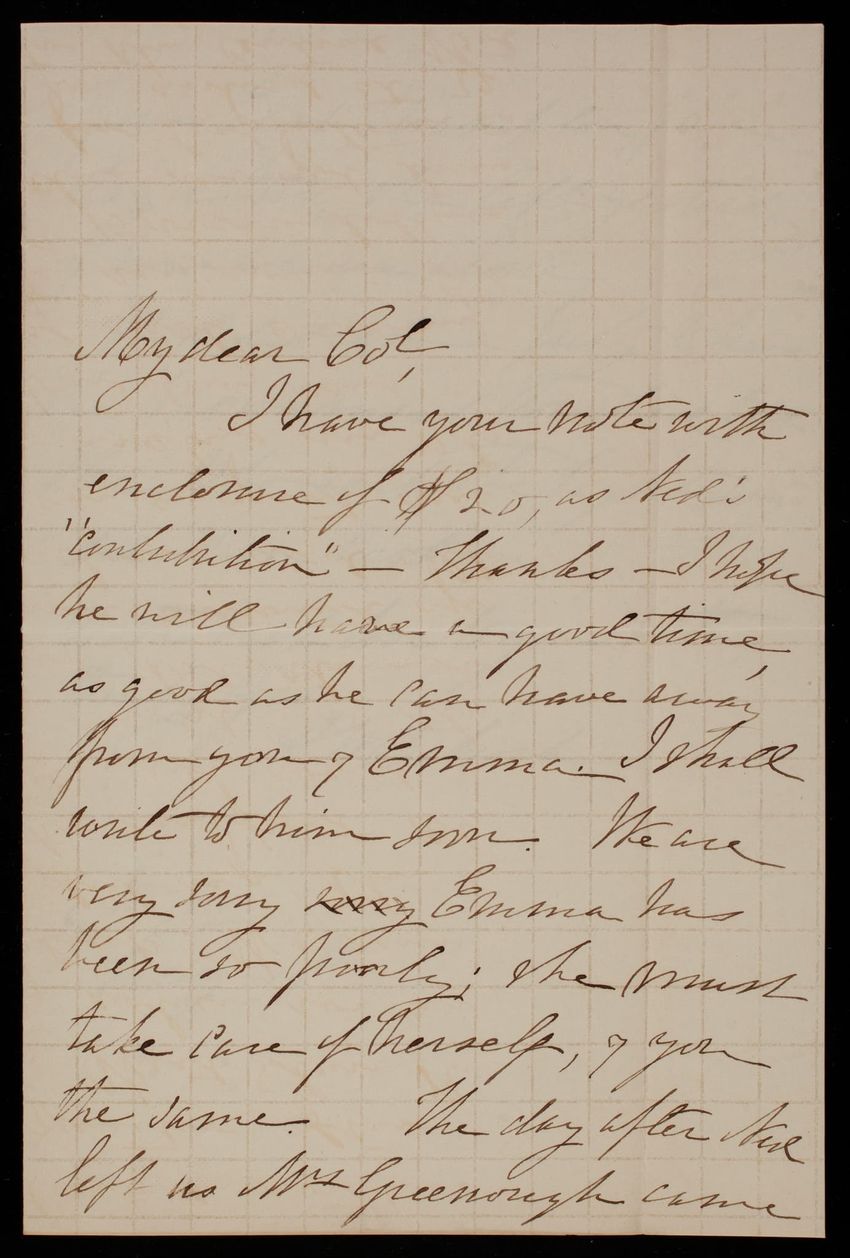 My dear Col,
I have your note with
enclosure of $20, as Ned's
"contribution" — Thanks — I hope
he will have a good time,
as good as he can have away
from you & Emma. I shall
write to him soon. We are
very sorry sorry Emma has
been so poorly; she must
take care of herself, & you
the same. The day after Ned
left us Mrs Greenough came